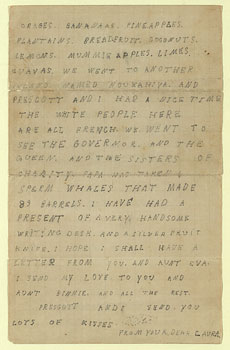 ORGES, BANANAAS, PINEAPPLES,
PLANTAINS, BREADFRUIT, COCOANUTS,
LEMONS, MUMMIE APPLES, LIMES,
GUAVAS, WE WENT TO ANOTHER
NAMED AND
PRESCOTT AND I HAD A NICE TIME
THE WHITE PEOPLE HERE
ARE ALL FRENCH WE WENT TO
SEE THE GOVERNOR, AND THE
QUEEN, AND THE SISTERS OF
CHARITY. PAPA HAS TAKEN
SPERM WHALES THAT MADE
85 BARRELS. I HAVE HAD A
PRESENT OF A VERY HANDSOME
WRITING DESK AND A SILVER FRUIT
KNIFE. I HOPE I SHALL HAVE A
LETTER FROM YOU AND AUNT
I SEND MY LOVE TO YOU AND
AUNT AND ALL THE REST.
PRESCOTT AND I SEND YOU
LOTS OF KISSES
FROM YOUR LAURA